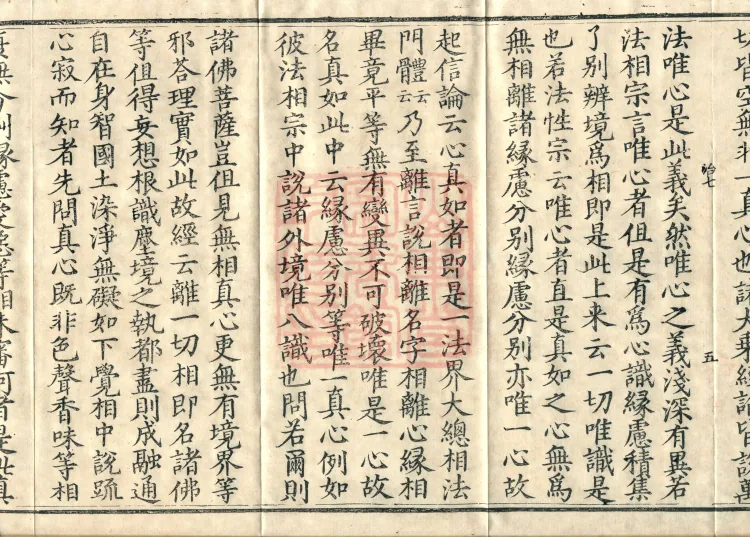 切皆空無非一真心也諸大乘經論皆說萬
五
法唯心是此義矣然唯心之義淺深有異若
法相宗言唯心者但是有為心識緣慮積集
了別辨境為相即是此上来云一切唯識是
也若法性宗云唯心者直是真如之心無為
無相離諸緣慮分別緣慮分別亦唯一心故
起信論云心真如者即是一法界大總相法
門體云云乃至離言說相離名字相離心緣相
畢竟平等無有變異不可破壞唯是一心故
名真如此中云緣慮分別等唯一真心例如
彼法相宗中說諸外境唯八識也問若爾則
諸佛菩薩豈但見無相真心更無有境界等
邪荅理實如此故經云離一切相即名諸佛
等但得妄想根識塵境之執都盡則成融通
自在身智國土染淨無礙如下覺相中說疏
心寂而知者先問真心既非色聲香味等相
無分別緣慮等相未審何者是此真